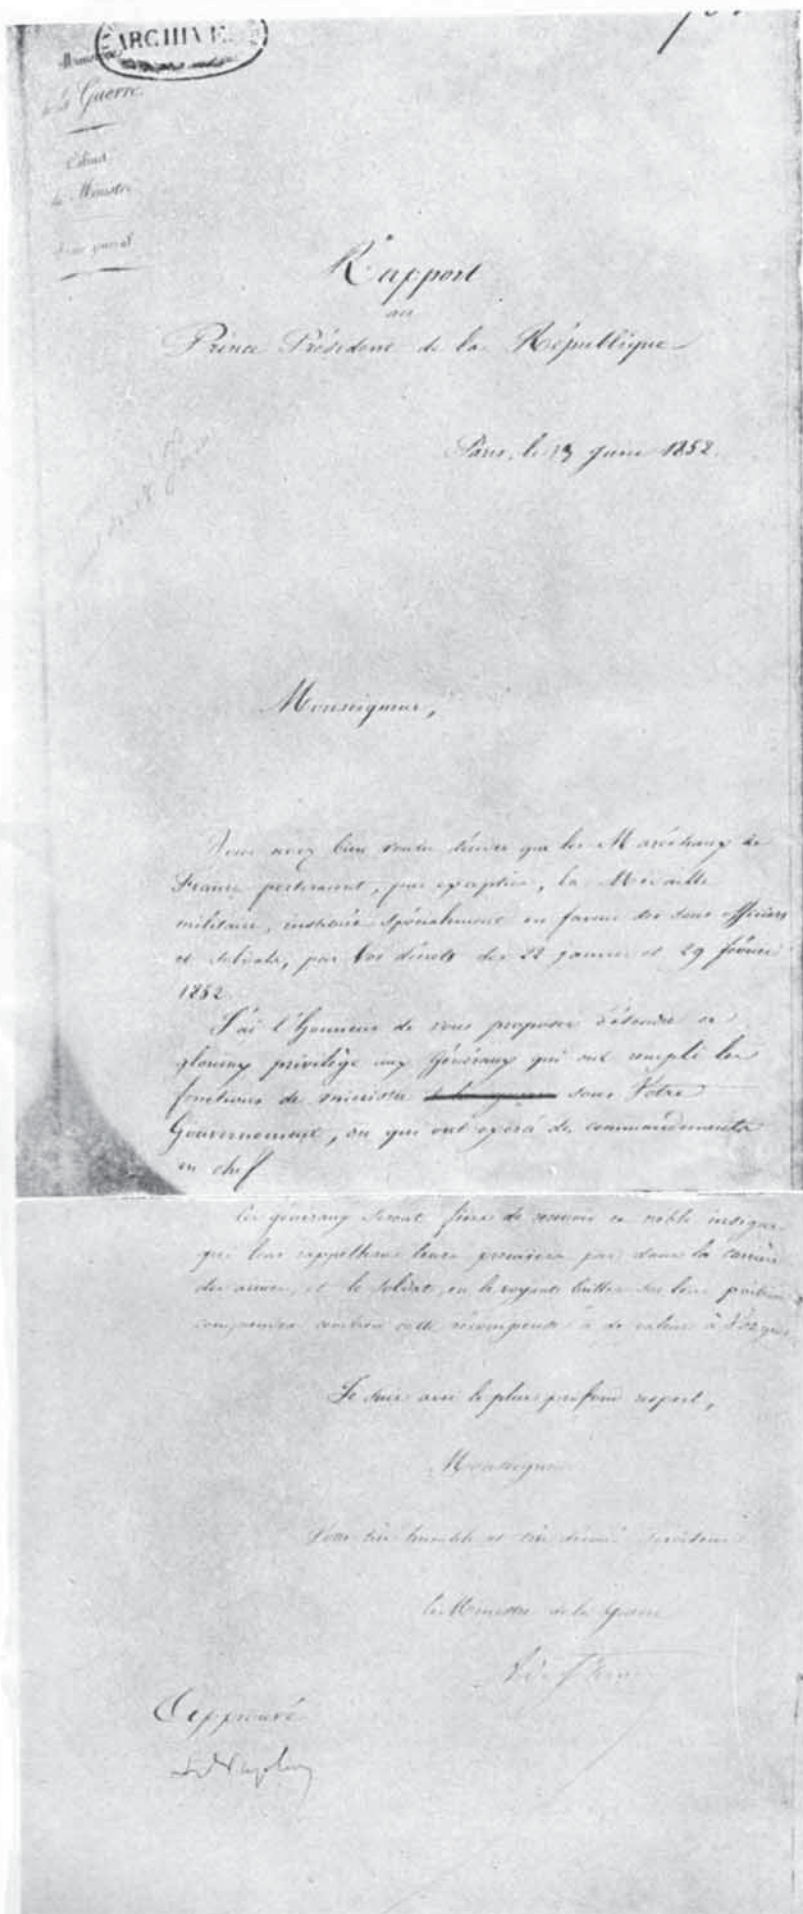 ARCHIVE
de la Guerre.
Cabinet
du Ministre
Rapport
au
Prince Président de la République
Paris, le 13 Juin 1852.
Monseigneur,
Vous avez bien voulu décider que les Maréchaux de
France porteraient, par exception, la Médaille
militaire, instituée spécialement en faveur des sous officiers
et soldats, par Vos décrets des 22 janvier et 29 février
1852.
J'ai l'honneur de vous proposer d'étendre ce
glorieux privilège aux Généraux qui ont rempli les
fonctions de ministre de la guerre sous Votre
Gouvernement, ou qui ont exercé des commandements
en chef
Les généraux seront fiers de recevoir ce noble insigne
qui leur rappellera leurs premiers pas dans la carrière
des armes, et le soldat, en le voyant briller sur leur poitrine
comprendra combien cette récompense a de valeur à Vos yeux
Je suis avec le plus profond respect,
Monseigneur
Votre très humble et très dévoué serviteur
Le Ministre de la Guerre
Approuvé